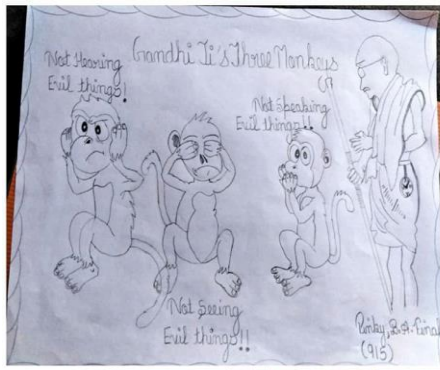 Gandhi Ji's Three Monkeys
Not Hearing
Evil things!
Not Speaking
Evil things!!
Not Seeing
Evil things!!
Pinky, B.A. Final
(915)